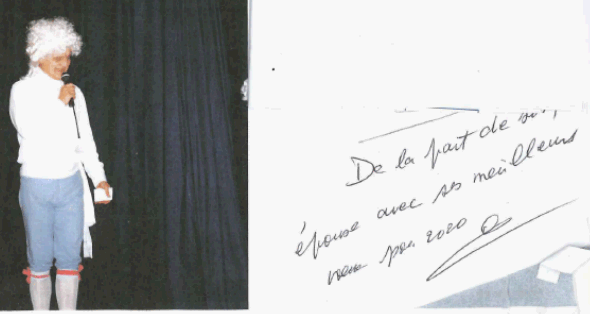 De la part de son
épouse avec ses meilleurs
vœux pour 2020